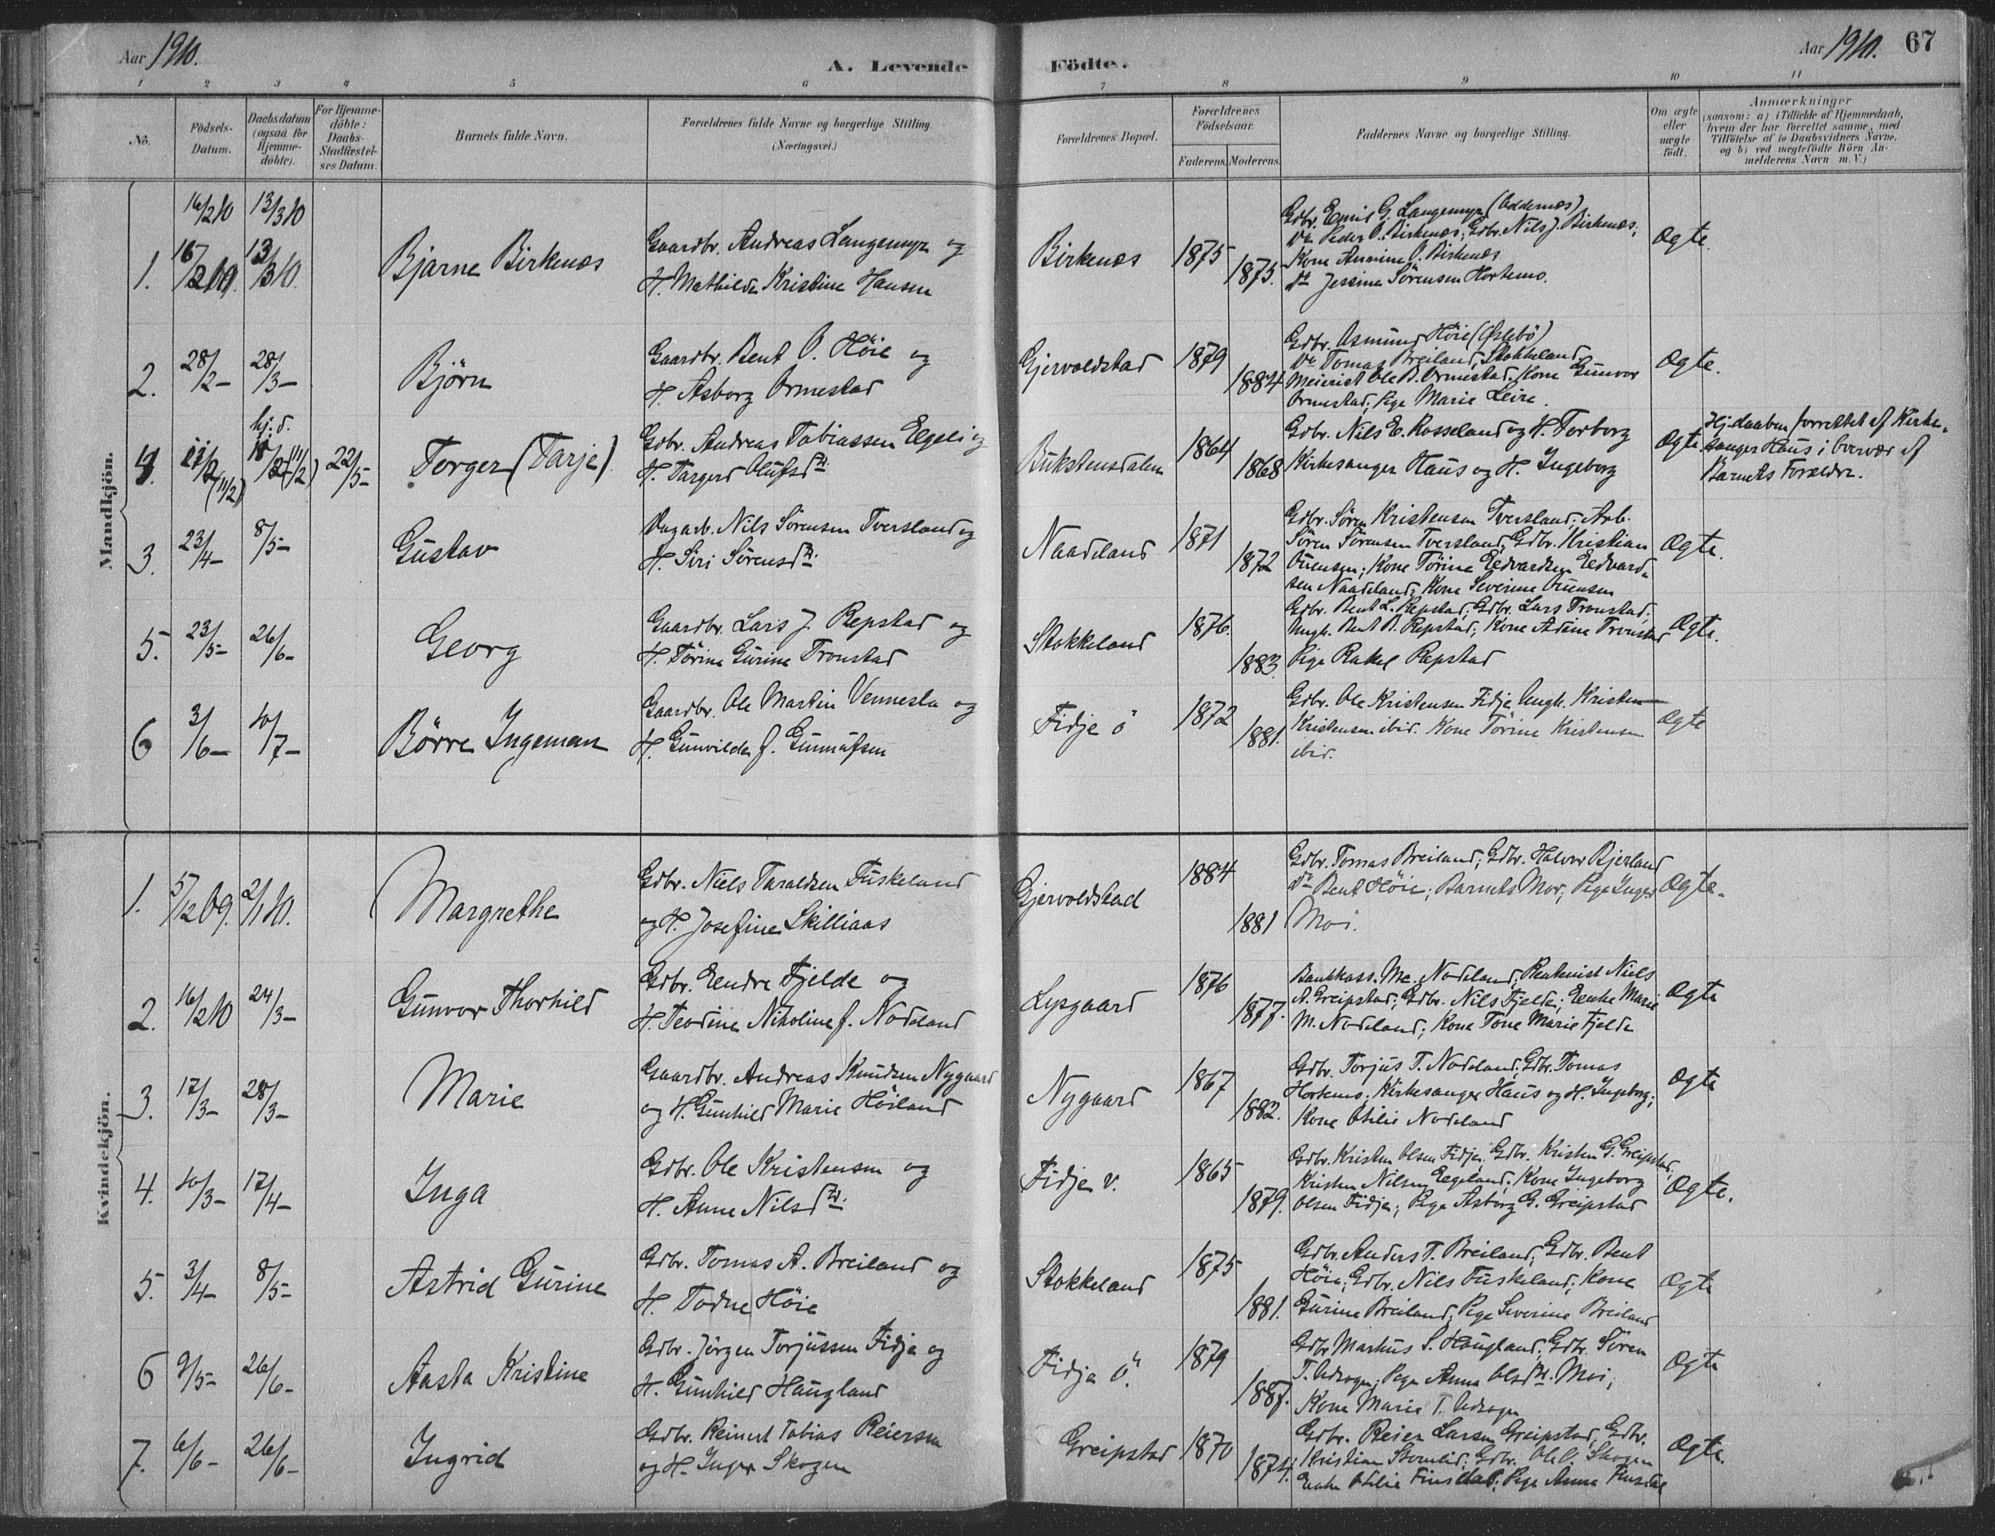 Aar 1910.
A. Levende Födte.
Aar 1910. 67
1 2 3 4 5 6 7 8 9 10 11
No.
Födsels-Datum.
Daabsdatum (ogsaa for Hjemmedöbte).
For Hjemmedöbte: Daabs-Stadfæstelses Datum.
Barnets fulde Navn.
Forældrenes fulde Navne og borgerlige Stilling. (Næringsvei.)
Forældrenes Bopæl.
Forældrenes Födselsaar.
Faderens. Moderens.
Faddernes Navne og borgerlige Stilling.
Om ægte eller uægte födt.
Anmærkninger
(saasom: a) i Tilfælde af Hjemmedaab, hvem der har forrettet samme, med Tilföielse af to Daabsvidners Navne. og b) ved uægtefödte Börn Anmelderens Navn m. V.)
Mandkjön.
16/2 10 13/3 10
1. 16/2 10. 13/3 10. Bjarne Birkenæs
Gaardbr. Andreas Langemyr og
H. Mathilde Kristine Hansen
Birkenæs 1875 1875.
Gdbr. Emil G. Langemyr (Oddernæs)
Do Peder O. Birkenæs; Gdbr. Nils J. Birkenæs;
Kone Annine O. Birkenæs
Do Jessine Sørensen Hortemo.
Ægte.
2. 28/2 – 28/3 – Björn
Gaardbr. Bent O. Höie og
H. Asborg Ormestad
Gjervoldstad 1879 1884
Gdbr. Asmund Höie (Øslebö)
Do Tomas Breiland, Stokkeland,
Meierist Ole B. Ormestad, Kone Gunvor
Ormestad; Pige Marie Leire.
Ægte.
hj. d.
4. 11/2 (11/2) (11/2) 22/5 – Torger (Tarje).
Gdbr. Andreas Tobiassen Egeli og
H. Targerd Olufsd.
Bukstensdalen 1864 1868
Gdbr. Nils E. Rosseland og H. Torborg
Kirkesanger Haus og H. Ingeborg
Ægte
Hj. daaben forrettet af Kirke-
sanger Haus i overvær af
Barnets Forældre.
3. 23/4 – 8/5 – Gustav
Nils Sørensen Tversland og
H. Siri Sørensd.
Naadeland 1871 1872
Gdbr. Søren Kristensen Tversland; Arb.
Søren Sørensen Tversland, Gdbr. Kristian
Ouensen; Kone Tørine Eedvardsen Eedvard-
sen Naadeland; Kone Severine Ouensen
Ægte.
5. 23/5 – 26/6 – Georg
Gaardbr. Lars J. Repstad og
H. Tørine Gurine Tronstad
Stokkeland 1876. 1883.
Gdbr. Bent L. Repstad; Gdbr. Lars Tronstad;
Ungk. Bent B. Repstad; Kone Adine Tronstad
Pige Rakel Repstad
Ægte.
6 3/6 – 10/7 – Börre Ingeman
Gaardbr. Ole Martin Vennesla og
H. Gunvilde f. Gunnufsen
Fidje ö 1872 1881.
Gdbr. Ole Kristensen Fidje Ungk. Kristen
Kristensen ibid. Kone Törine Kristensen
ibid.
Ægte
Kvindekjön.
1. 5/12 09. 2/1 10. Margrethe
Gdbr. Niels Taraldsen Fuskeland
og H. Josefine Skilliaas
Gjervoldstad 1884 1881
Gdbr. Tomas Breiland; Gdbr. Halvor Bjerland
Do Bent Höie; Barnets Mor; Pige Inger
Moi.
Ægte.
2. 16/2 10 24/3 – Gunvor Thorhild
Gdbr. Eendre Fjelde og
H. Teodine Nikoline f. Nodeland
Lysgaard 1876 1877.
Bankkass. M. Nodeland, Niels
A. Greipstad; Gdbr. Nils Fjelde; Eenke Marie
M. Nodeland; Kone Tone Marie Fjelde
Ægte
3. 17/3 – 28/3 – Marie
Gaardbr. Andreas Knudsen Nygaard
og H. Gunhild Marie Höiland
Nygaard 1867 1882.
Gdbr. Torjus T. Nodeland, Gdbr. Tomas
Hortemo; Kirkesanger Haus og H. Ingeborg;
Kone Otilie Nodeland
Ægte
4. 10/3 – 17/4 – Inga
Gdbr. Ole Kristensen og
H. Anne Nilsd.
Fidje v. 1865 1879.
Gdbr. Kristen Olsen Fidje, Gdbr. Kristen G. Greipstad,
Kristen Nilsen Egeland; Kone Ingeborg
Olsen Fidje; Pige Asborg G. Greipstad
Ægte.
5. 3/4 – 8/5 – Astrid Gurine
Gdbr. Tomas A. Breiland og
H. Todne Höie
Stokkeland 1875 1881.
Gdbr. Anders T. Breiland; Gdbr. Bent
Höie; Gdbr. Nils Fuskeland; Kone
Gurine Breiland; Pige Severine Breiland
Ægte
6 9/5 – 26/6 – Aasta Kristine
Gdbr. Jörgen Torjussen Fidje og
H. Gunhild Haugland
Fidje ö. 1879 1887.
Gdbr Markus S. Haugland; Gdbr. Sören
T. Udzogen; Pige Anna Olsdtr. Moi;
Kone Marie T. Udzogen
Ægte
7. 6/6 – 26/6 – Ingrid
Gdbr. Reinert Tobias Reiersen
og H. Inger Skogen
Greipstad 1870 1874.
Gdbr. Reier Larsen Greipstad, Gdbr.
Kristian Gdbr. Ole O. Skogen
Enke Otilie Pige Anna
Ægte.